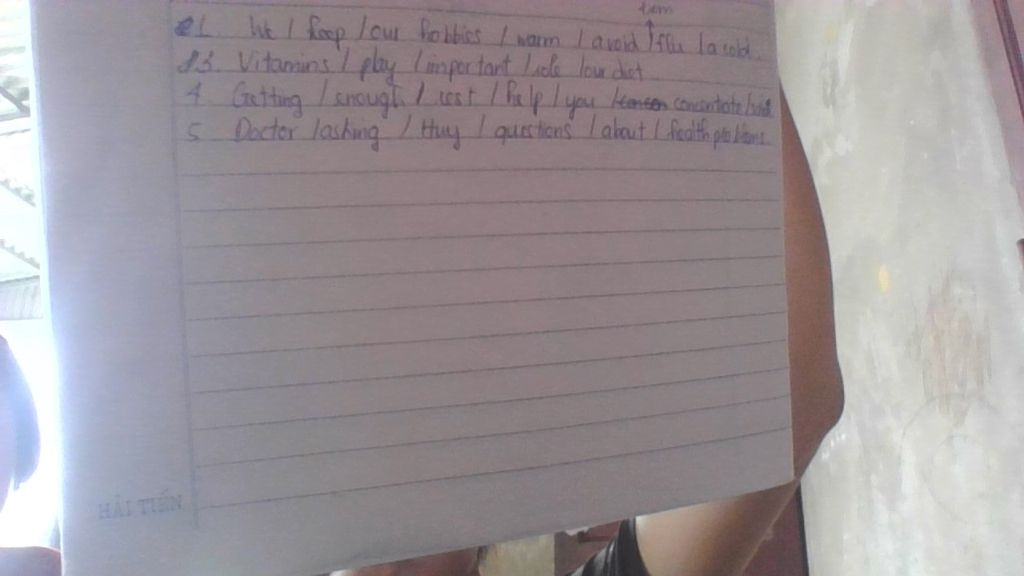 1. We / keep / our bobbies / warm / avoid / flu / a cold.
3. Vitamins / play / important / role / our diet
4. Getting / enough / rest / help / you concentrate /
5. Doctor / asking / Huy / questions / about / health problems.
HẢI TIẾN